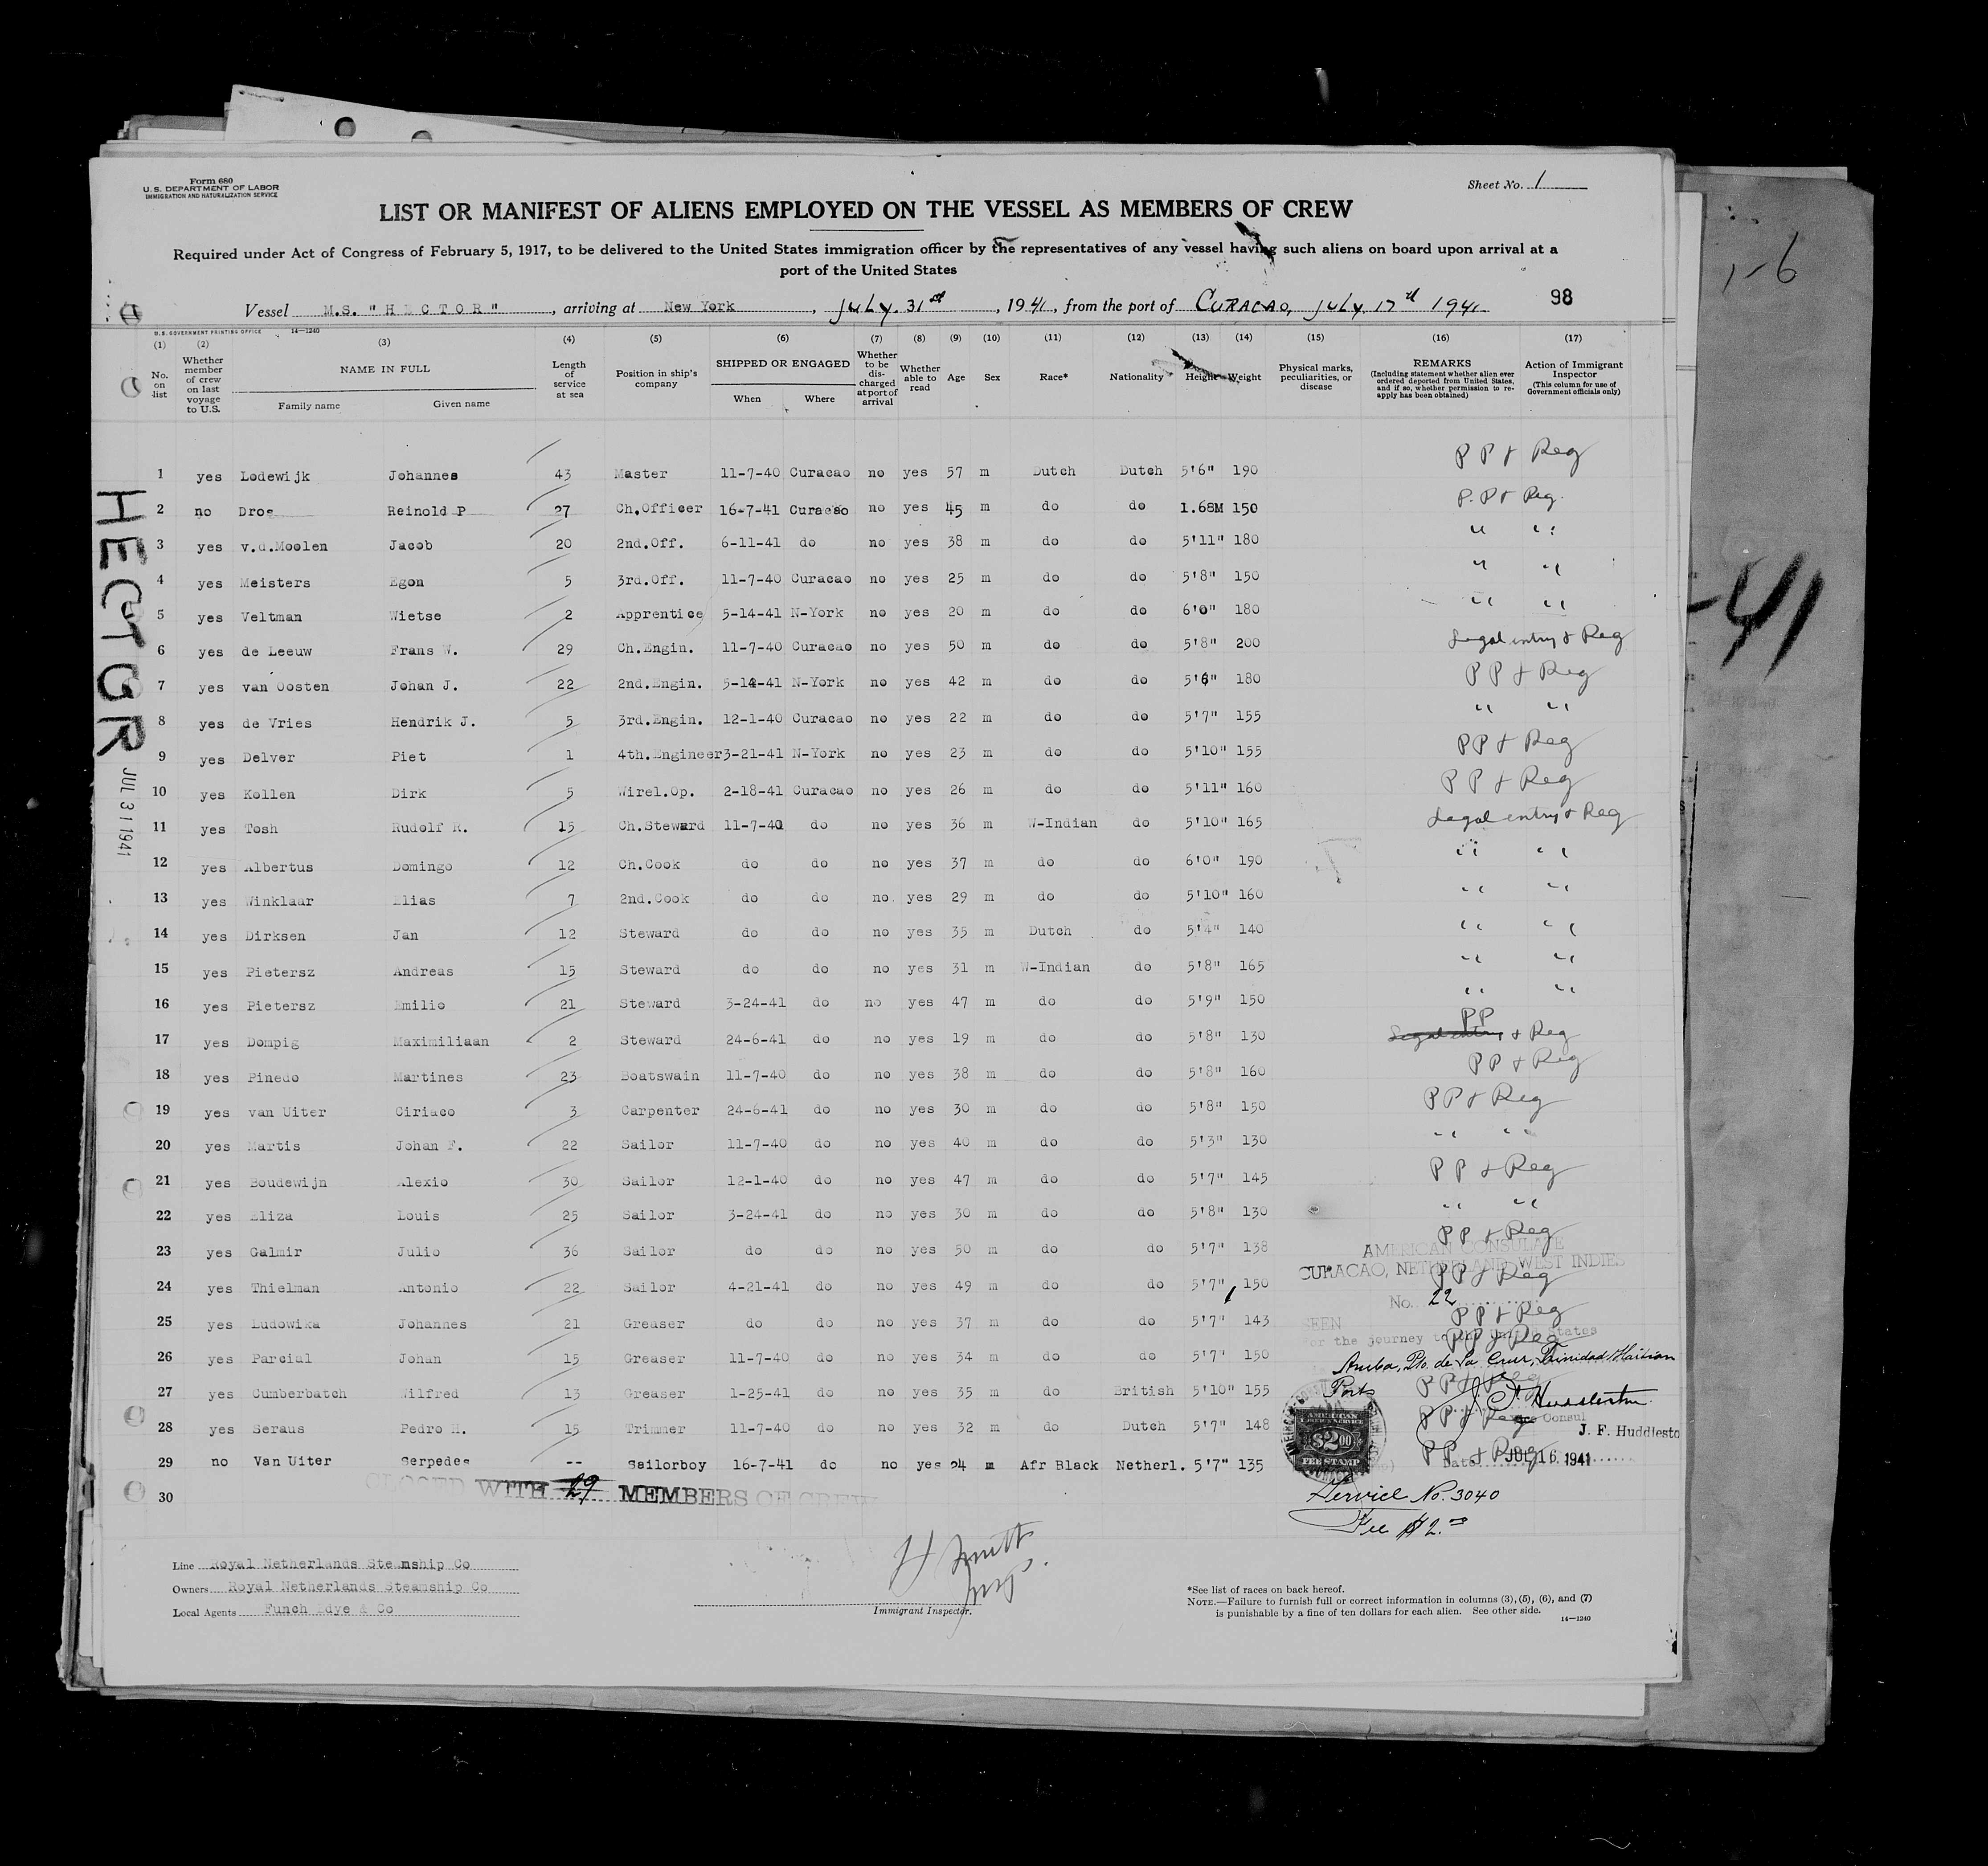 Form 680
U. S. DEPARTMENT OF LABOR
IMMIGRATION AND NATURALIZATION SERVICE
Sheet No. 1
LIST OR MANIFEST OF ALIENS EMPLOYED ON THE VESSEL AS MEMBERS OF CREW
Required under Act of Congress of February 5, 1917, to be delivered to the United States immigration officer by the representatives of any vessel having such aliens on board upon arrival at a
port of the United States
Vessel M.S. "HECTOR", arriving at New York, July 31st, 1941, from the port of CURACAO, July 17th 1941
98
U. S. GOVERNMENT PRINTING OFFICE 14—1240
(1) (2) (3) (4) (5) (6) (7) (8) (9) (10) (11) (12) (13) (14) (15) (16) (17)
No. on list
Whether member of crew on last voyage to U.S.
NAME IN FULL
Family name Given name
Length of service at sea
Position in ship's company
SHIPPED OR ENGAGED
When Where
Whether to be discharged at port of arrival
Whether able to read
Age
Sex
Race*
Nationality
Height
Weight
Physical marks, peculiarities, or disease
REMARKS
(Including statement whether alien ever ordered deported from United States, and if so, whether permission to reapply has been obtained)
Action of Immigrant Inspector
(This column for use of Government officials only)
1 yes Lodewijk Johannes 43 Master 11-7-40 Curacao no yes 57 m Dutch Dutch 5'6" 190 PP & Reg
2 no Dros Reinold P 27 Ch.Officer 16-7-41 Curacao no yes 45 m do do 1.68M 150 P.P & Reg.
3 yes v.d.Moolen Jacob 20 2nd.Off. 6-11-41 do no yes 38 m do do 5'11" 180 " "
4 yes Meisters Egon 5 3rd.Off. 11-7-40 Curacao no yes 25 m do do 5'8" 150 " "
5 yes Veltman Wietse 2 Apprentice 5-14-41 N-York no yes 20 m do do 6'0" 180 " "
6 yes de Leeuw Frans W. 29 Ch.Engin. 11-7-40 Curacao no yes 50 m do do 5'8" 200 Legal entry & Reg
7 yes van Oosten Johan J. 22 2nd.Engin. 5-14-41 N-York no yes 42 m do do 5'6" 180 PP & Reg
8 yes de Vries Hendrik J. 5 3rd.Engin. 12-1-40 Curacao no yes 22 m do do 5'7" 155 " "
9 yes Delver Piet 1 4th.Engineer 3-21-41 N-York no yes 23 m do do 5'10" 155 PP & Reg
10 yes Kollen Dirk 5 Wirel.Op. 2-18-41 Curacao no yes 26 m do do 5'11" 160 PP & Reg
11 yes Tosh Rudolf R. 15 Ch.Steward 11-7-40 do no yes 36 m W-Indian do 5'10" 165 Legal entry & Reg
12 yes Albertus Domingo 12 Ch.Cook do do no yes 37 m do do 6'0" 190 " "
13 yes Winklaar Elias 7 2nd.Cook do do no yes 29 m do do 5'10" 160 " "
14 yes Dirksen Jan 12 Steward do do no yes 35 m Dutch do 5'4" 140 " "
15 yes Pietersz Andreas 15 Steward do do no yes 31 m W-Indian do 5'8" 165 " "
16 yes Pietersz Emilio 21 Steward 3-24-41 do no yes 47 m do do 5'9" 150 " "
17 yes Dompig Maximiliaan 2 Steward 24-6-41 do no yes 19 m do do 5'8" 130 Legal entry PP & Reg
18 yes Pinedo Martines 23 Boatswain 11-7-40 do no yes 38 m do do 5'8" 160 PP & Reg
19 yes van Uiter Ciriaco 3 Carpenter 24-6-41 do no yes 30 m do do 5'8" 150 PP & Reg
20 yes Martis Johan F. 22 Sailor 11-7-40 do no yes 40 m do do 5'3" 130 " "
21 yes Boudewijn Alexio 30 Sailor 12-1-40 do no yes 47 m do do 5'7" 145 PP & Reg
22 yes Eliza Louis 25 Sailor 3-24-41 do no yes 30 m do do 5'8" 130 " "
23 yes Galmir Julio 36 Sailor do do no yes 50 m do do 5'7" 138 PP & Reg
24 yes Thielman Antonio 22 Sailor 4-21-41 do no yes 49 m do do 5'7" 150 PP & Reg
25 yes Ludowika Johannes 21 Greaser do do no yes 37 m do do 5'7" 143 PP & Reg
26 yes Parcial Johan 15 Greaser 11-7-40 do no yes 34 m do do 5'7" 150 PP & Reg
27 yes Cumberbatch Wilfred 13 Greaser 1-25-41 do no yes 35 m do British 5'10" 155 PP & Reg
28 yes Seraus Pedro H. 15 Trimmer 11-7-40 do no yes 32 m do Dutch 5'7" 148 PP & Reg
29 no Van Uiter Serpedes -- Sailorboy 16-7-41 do no yes 24 m Afr Black Netherl. 5'7" 135 PP & Reg
30
CLOSED WITH 29 MEMBERS OF CREW
AMERICAN CONSULATE
CURACAO, NETHERLAND WEST INDIES
No. 22
SEEN
For the journey to the United States
Aruba, Pto. de la Cruz, Trinidad, Haitian
Ports
J. F. Huddleston
Vice Consul
J. F. Huddlesto
Date JUL 16 1941
AMERICAN
$2.00
FEE STAMP
Service No. 3040
Fee $2.=
HECTOR
JUL 31 1941
Line Royal Netherlands Steamship Co
Owners Royal Netherlands Steamship Co
Local Agents Funch Edye & Co
Immigrant Inspector.
*See list of races on back hereof.
NOTE.—Failure to furnish full or correct information in columns (3), (5), (6), and (7)
is punishable by a fine of ten dollars for each alien. See other side.
14—1240
1-6
-41